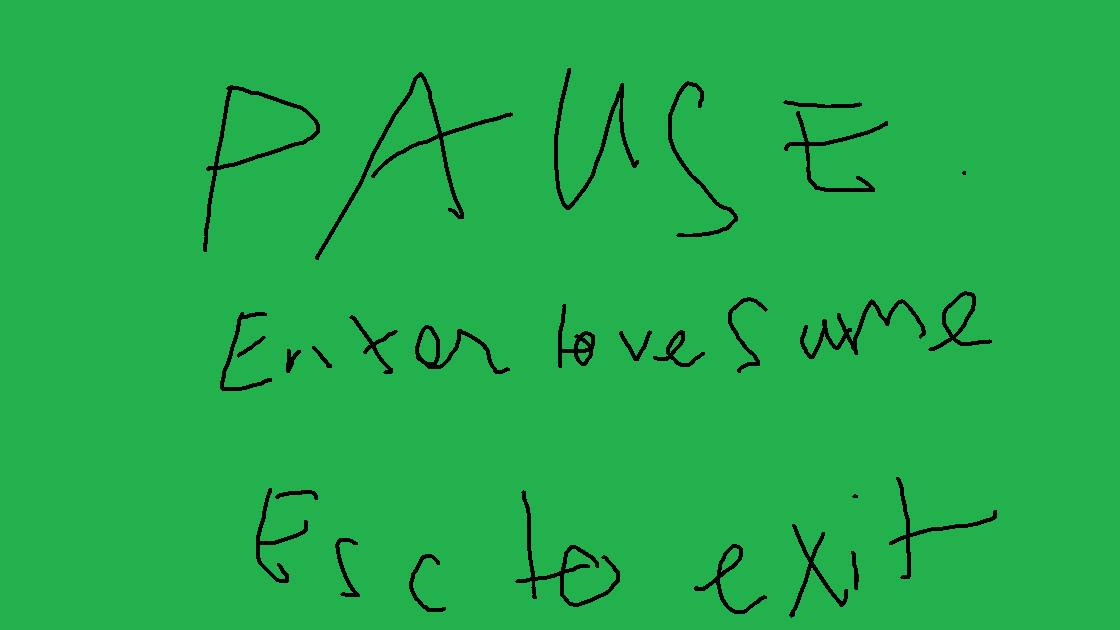 PAUSE
Enter to resume
Esc to exit